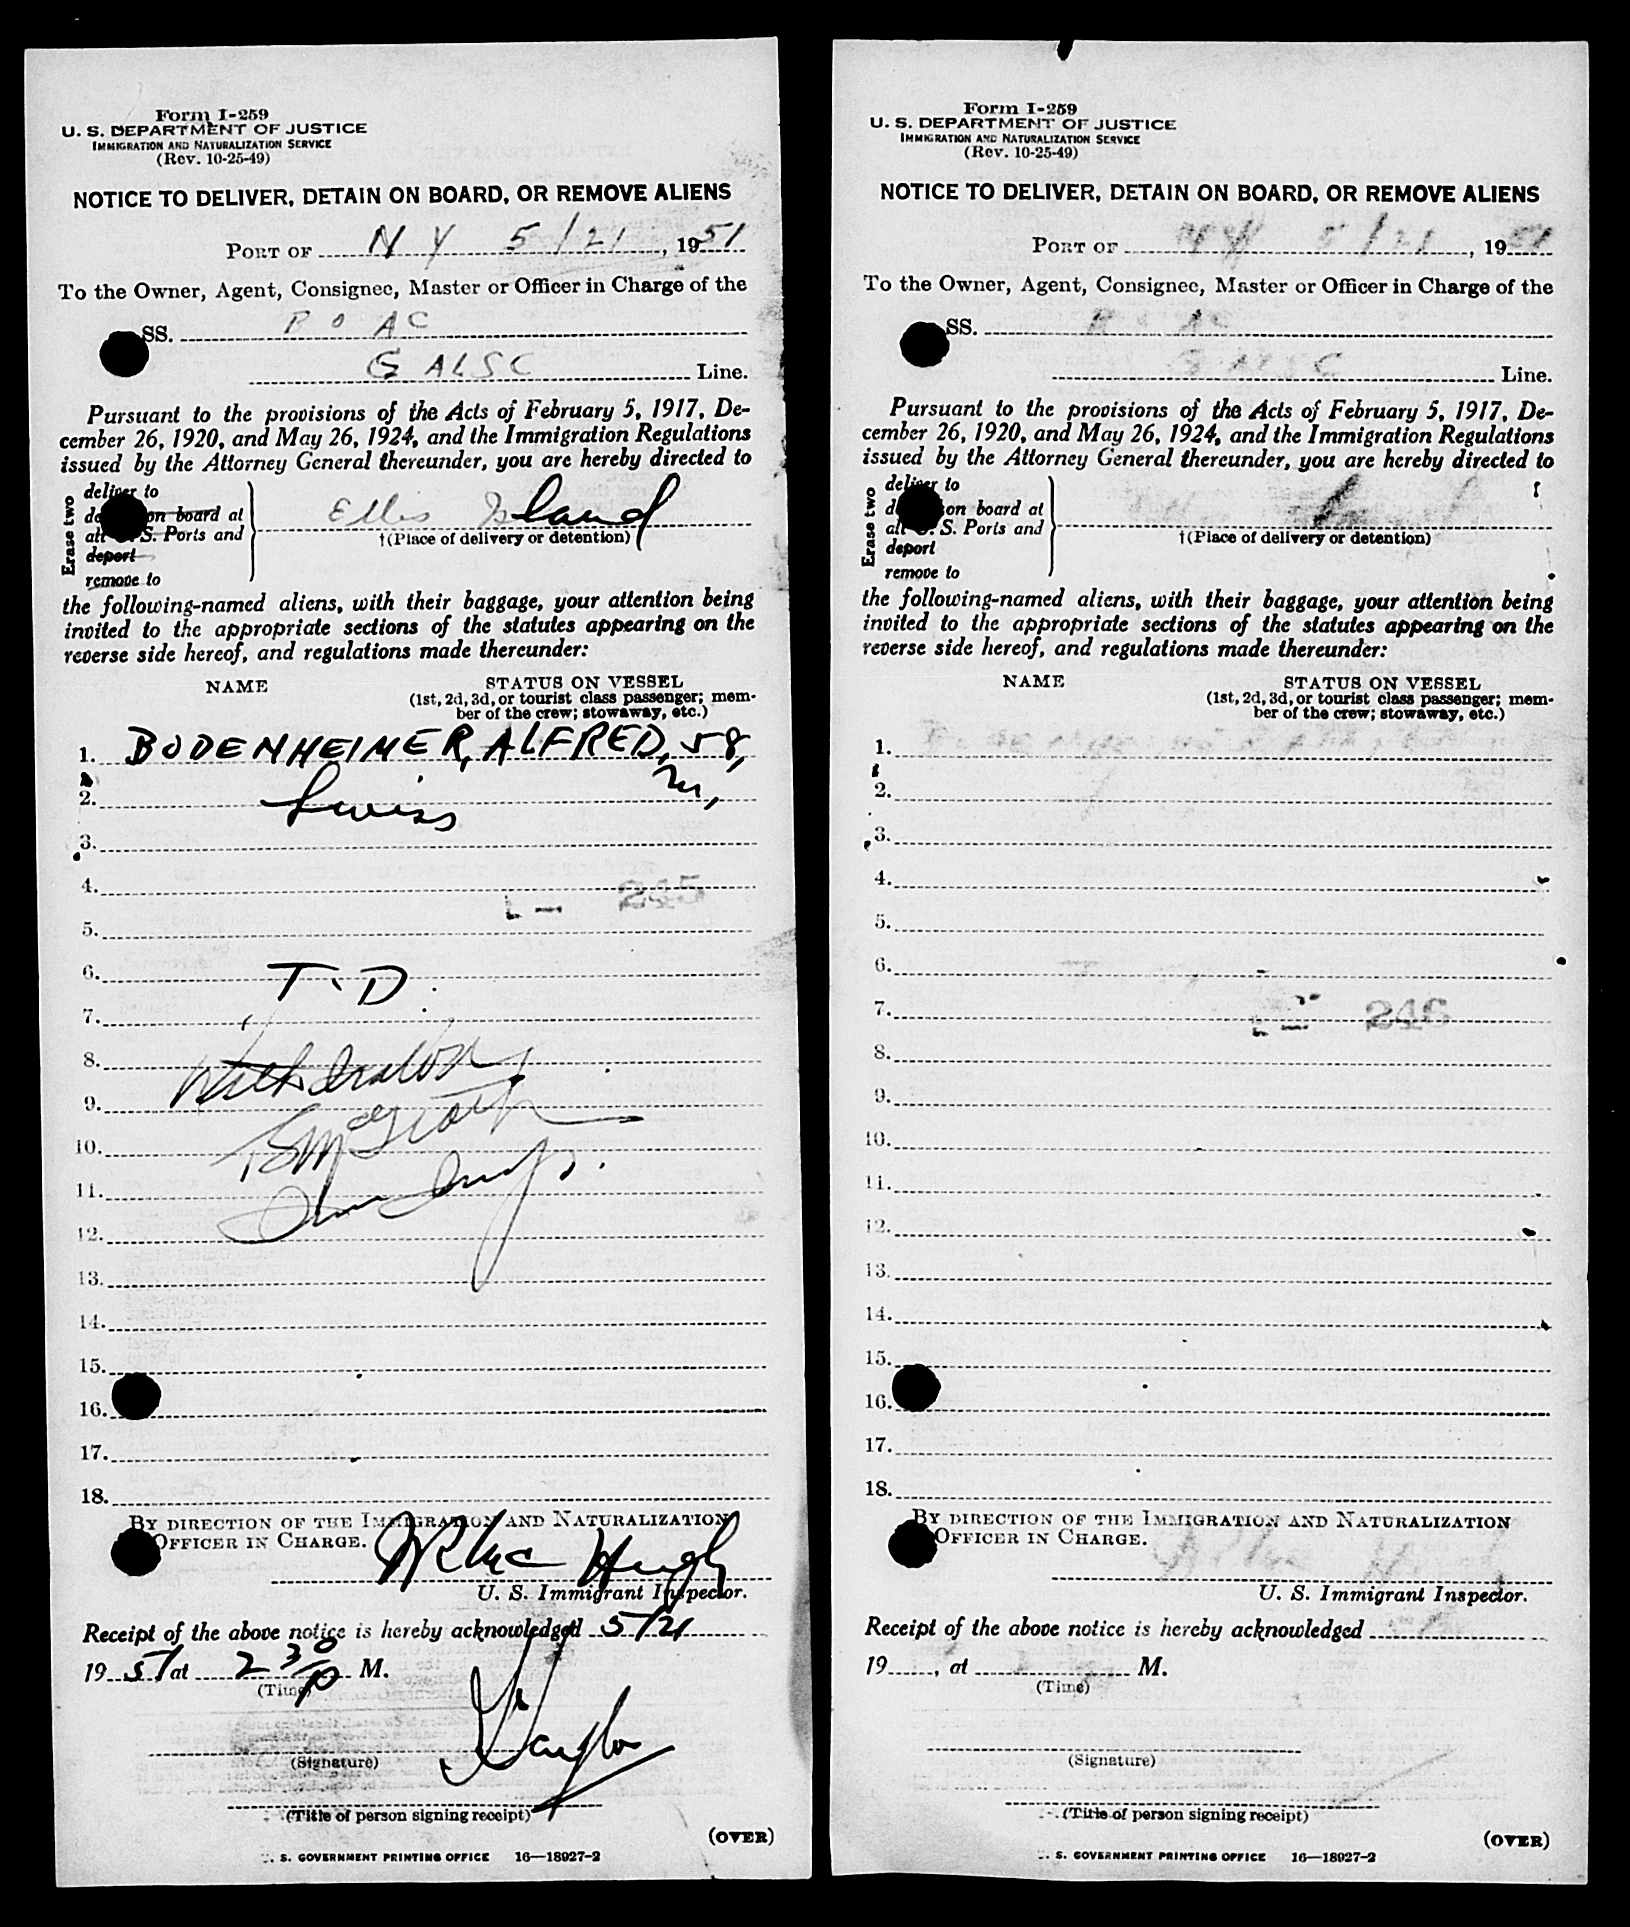 Form I-259
U. S. DEPARTMENT OF JUSTICE
IMMIGRATION AND NATURALIZATION SERVICE
(Rev. 10-25-49)
NOTICE TO DELIVER, DETAIN ON BOARD, OR REMOVE ALIENS
PORT OF N Y 5/21, 1951
To the Owner, Agent, Consignee, Master or Officer in Charge of the
SS. B O A C
G ALSC Line.
Pursuant to the provisions of the Acts of February 5, 1917, De-
cember 26, 1920, and May 26, 1924, and the Immigration Regulations
issued by the Attorney General thereunder, you are hereby directed to
Erase two
deliver to
on board at
all S. Ports and
deport
remove to
Ellis Island
†(Place of delivery or detention)
the following-named aliens, with their baggage, your attention being
invited to the appropriate sections of the statutes appearing on the
reverse side hereof, and regulations made thereunder:
NAME STATUS ON VESSEL
(1st, 2d, 3d, or tourist class passenger; mem-
ber of the crew; stowaway, etc.)
1. BODENHEIMER, ALFRED, 58,
m,
2. Swiss
3.
4.
245
5.
6. T. D.
7.
8. Withdrawn
9.
10.
11.
12.
13.
14.
15.
16.
17.
18.
BY DIRECTION OF THE IMMIGRATION AND NATURALIZATION
OFFICER IN CHARGE.
Mc Hugh
U. S. Immigrant Inspector.
Receipt of the above notice is hereby acknowledged 5/21
1951 at 2 30 P M.
(Time)
(Signature)
(Title of person signing receipt)
(OVER)
S. GOVERNMENT PRINTING OFFICE 16—18927-2
Form I-259
U. S. DEPARTMENT OF JUSTICE
IMMIGRATION AND NATURALIZATION SERVICE
(Rev. 10-25-49)
NOTICE TO DELIVER, DETAIN ON BOARD, OR REMOVE ALIENS
PORT OF N Y 5/21, 1951
To the Owner, Agent, Consignee, Master or Officer in Charge of the
SS. B O A C
G ALSC Line.
Pursuant to the provisions of the Acts of February 5, 1917, De-
cember 26, 1920, and May 26, 1924, and the Immigration Regulations
issued by the Attorney General thereunder, you are hereby directed to
Erase two
deliver to
on board at
all U. S. Ports and
deport
remove to
†(Place of delivery or detention)
the following-named aliens, with their baggage, your attention being
invited to the appropriate sections of the statutes appearing on the
reverse side hereof, and regulations made thereunder:
NAME STATUS ON VESSEL
(1st, 2d, 3d, or tourist class passenger; mem-
ber of the crew; stowaway, etc.)
1.
2.
3.
4.
5.
6.
7. 246
8.
9.
10.
11.
12.
13.
14.
15.
16.
17.
18.
BY DIRECTION OF THE IMMIGRATION AND NATURALIZATION
OFFICER IN CHARGE.
U. S. Immigrant Inspector.
Receipt of the above notice is hereby acknowledged
19, at M.
(Time)
(Signature)
(Title of person signing receipt)
(OVER)
S. GOVERNMENT PRINTING OFFICE 16—18927-2